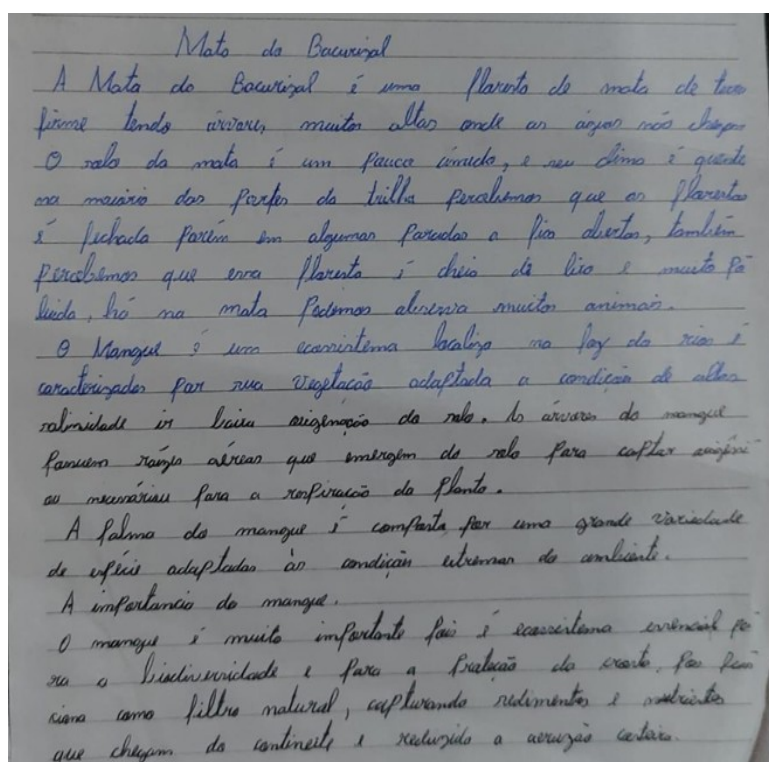 Mata do Bacurizal
A Mata do Bacurizal é uma floresta de mata de terra
firme tendo árvores, muitos altas onde as águas não chegam
O solo da mata é um pouco úmido, e seu clima é quente
na maioria das partes da trilha percebemos que as florestas
é fechada porém em algumas paradas a fios abertas, também
percebemos que essa floresta é cheia de lixo e muito po
luida, há na mata podemos observa muitos animais.
O Mangue é um ecossistema localiza na foz do rios é
caracterizados por sua vegetação adaptada a condição de altas
salinidade baixa oxigenação do solo. As árvores do mangue
possuem raízes aéreas que emergem do solo para captar
ou para a respiração da planta.
A do mangue é composta por uma grande variedade
de espécie adaptadas às condição extremas do ambiente.
A importancia do mangue.
O mangue é muito importante pois é ecossistema essencial pa
ra a biodiversidade e para a proteção da costa, por
ciona como filtro natural, capturando sedimentos e nutrientes
que chegam do continente e reduzido a costeira.